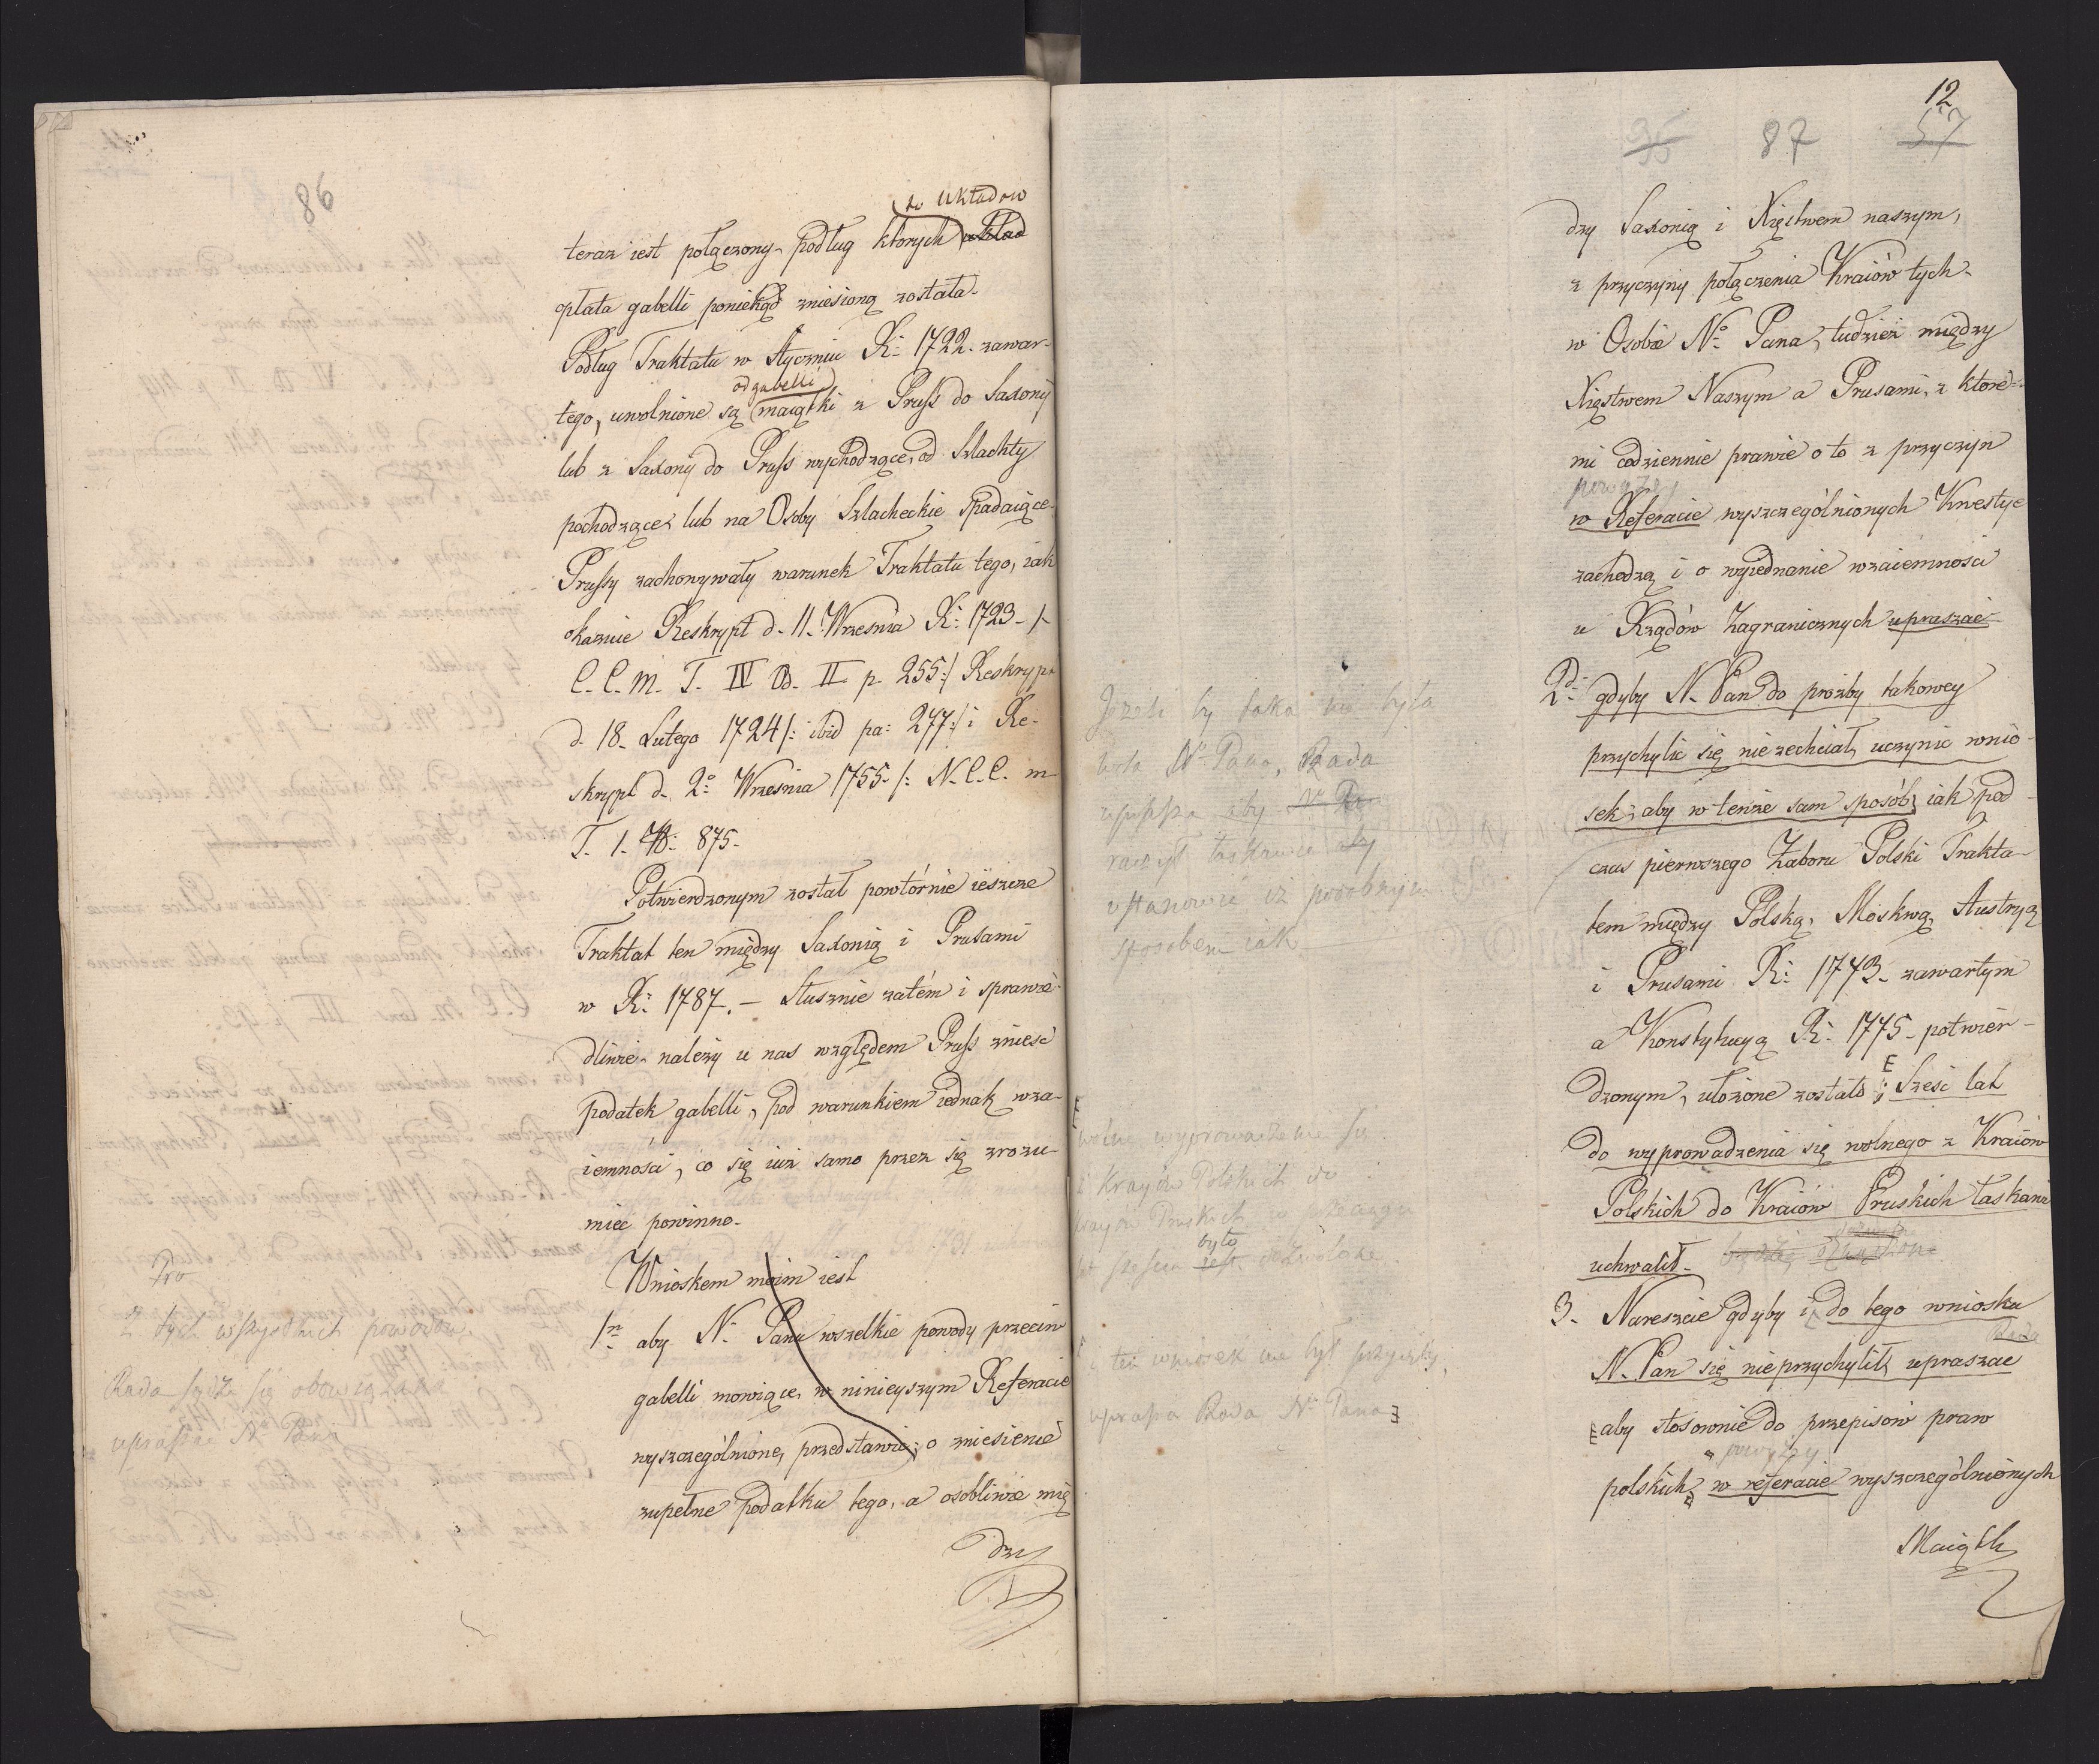 86
to układow
teraz iest połączony, podług ktorych układ
opłata gabelli poniekąd zniesioną została.
Podług Traktatu w Styczniu R: 1722. zawar-
od gabelli
tego, uwolnione są maiątki z Pruss do Saxonij
lub z Saxonij do Pruss wychodzące, od Szlachty
pochodzące, lub na Osoby Szlacheckie spadaiące.
Prussy zachowywały warunek Traktatu tego, iak
okazuie Reskrypt d. 11. Września R: 1723 -/-
C. C. M. T. IV Od. II p. 255:/ Reskrypt
d. 18. Lutego 1724 /: ibid pa: 277:/ i Re-
skrypt d. 2o Września 1755. /: N. C. C. m
T. 1. 875.
Potwierdzonym został powtórnie ieszcze
Traktat ten między Saxonią i Prusami
w R: 1787. — Słusznie zatém i sprawie-
dliwie, należy u nas względem Pruss znieść
podatek gabelli, pod warunkiem iednak wza-
iemności, co się iuż samo przez się zrozu-
mieć powinno.
Wnioskem moim iest
1n aby N: Panu wszelkie powody przeciw
gabelli mowiące, w ninieyszym Referacie
wyszczególnione, przedstawić; o zniesienie
zupełne podatku tego, a osobliwie mię
dzy
Pro
Z tych wszystkich powodow
Rada sądzi się obowiązaną
uprasza N: Pana
12
95 87 57
dzy Saxonią i Xięstwem naszym,
z przyczyny połączenia Kraiów tych
w Osobie No Pana, tudzież między
Xięstwem Naszym a Prusami, z które-
mi codziennie prawie o to z przyczyn
powyżej
w Referacie wyszczególnionych Kwestye
zachodzą i o wyiednanie wzaiemności
u Rządów Zagranicznych upraszać
2d gdyby N. Pan do prozby takowey
przychylić się nie zechciał, uczynić wnio-
sek, aby w tenże sam sposób, iak pod-
czas pierwszego Zaboru Polski Trakta-
tem między Polską, Moskwą, Austryą
i Prusami R: 1773. zawartym
a Konstytucyą R: 1775. potwier-
dzonym, ułożone zostało; Sześć lat
do wyprowadzenia się wolnego z Kraiów
Polskich do Kraiów Pruskich łaskawie
uchwalił.
3. Nareszcie gdyby i do tego wniosku
Rada
N. Pan się nieprzychylił, upraszać
aby stosownie do przepisów praw
powyżey
polskich, w referacie wyszczególnionych
Maiątk
Jeżeli by taka nie była
wola No Pana, Rada
uprasza aby N. Pan
raczył łaskawie aby
ustanowić iż podobnym
sposobem iak
wolne wyprowadzenie się
z Krayów Polskich do
Krayów Pruskich w przeciągu
było
lat sześciu iest dozwolone
i ten wniosek nie był przyięty,
uprasza Rada No Pana